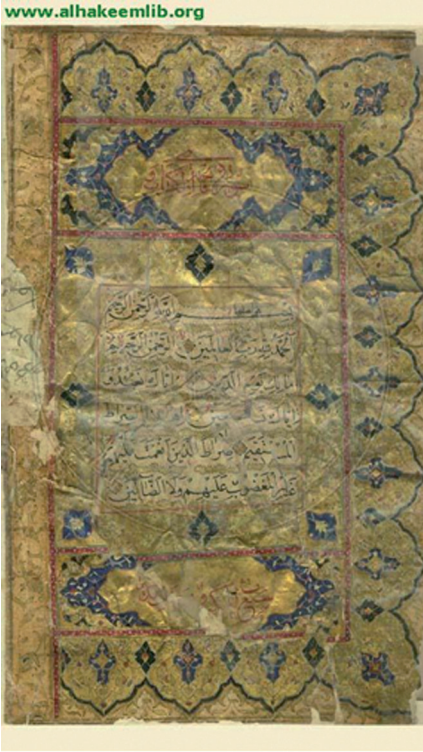 www.alhakeemlib.org
بسم الله الرحمن الرحيم
الحمد لله رب العالمين الرحمن الرحيم
مالك يوم الدين اياك نعبد و
اياك نستعين اهدنا الصراط
المستقيم صراط الذين انعمت عليهم
غير المغضوب عليهم ولا الضالين